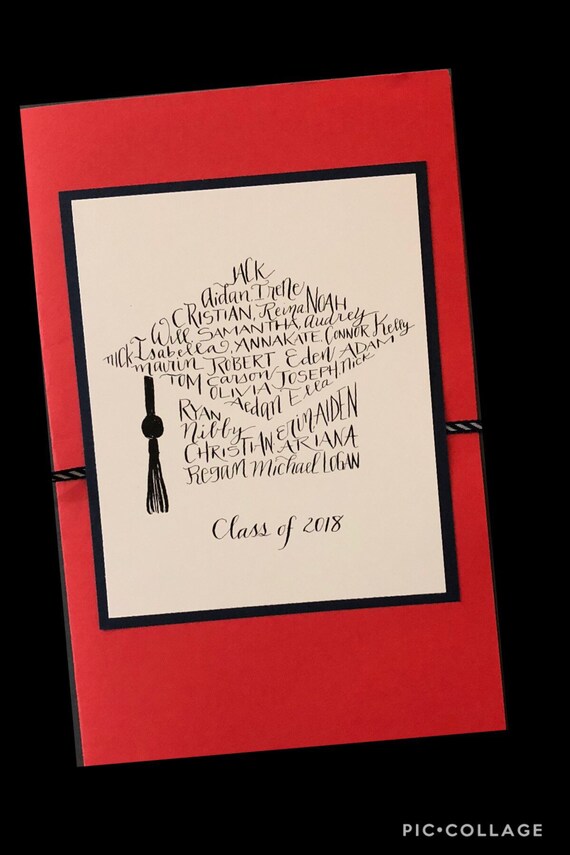 JACK
Aidan, Irene
CRISTIAN, Reina, NOAH
Will, SAMANTHA, Audrey
NICK, Isabella, ANNAKATE, CONNOR, Kelly
maurin, ROBERT Eden ADAM
TOM Carson JOSEPH, Nick
OLIVIA
Aedan Ella
RYAN ERIN, AIDEN
Nibby
CHRISTIAN ARIANA
Regam Michael LOGAN
Class of 2018
PIC•COLLAGE